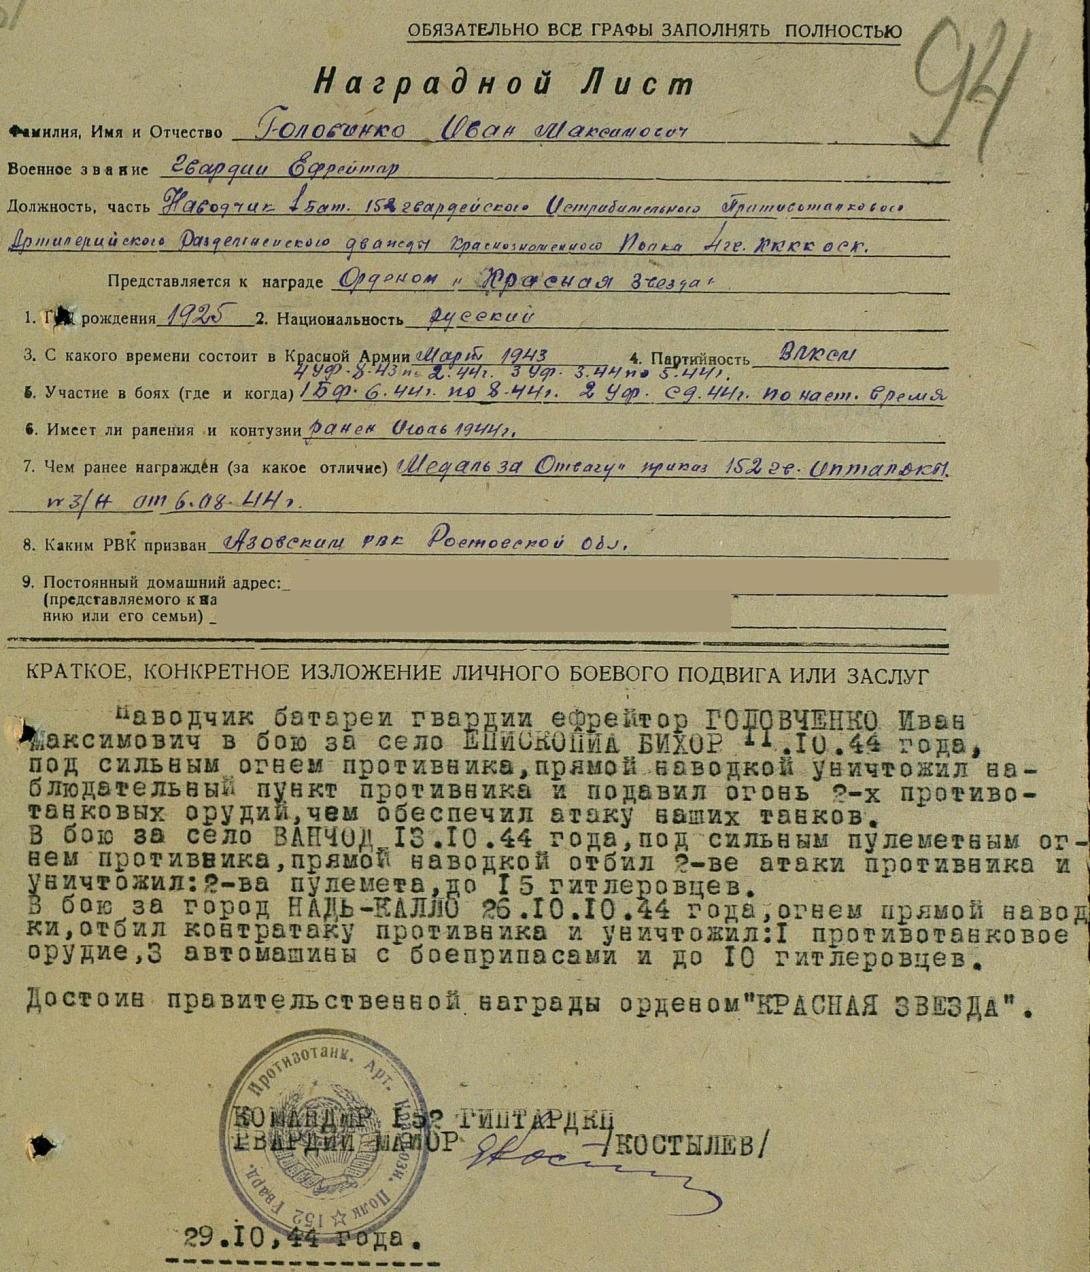 94
ОБЯЗАТЕЛЬНО ВСЕ ГРАФЫ ЗАПОЛНЯТЬ ПОЛНОСТЬЮ
Наградной Лист
Фамилия, Имя и Отчество Головченко Иван Максимович
Военное звание Гвардии Ефрейтор
Должность, часть Наводчик 1 Бат. 152 гвардейского Истребительного Противотанкового
Артилерийского Разделненского дважды Краснознаменного Полка 4 гв. ККККОСК.
Представляется к награде Орденом „Красная Звезда"
1. Год рождения 1925 2. Национальность русский
3. С какого времени состоит в Красной Армии Март 1943 4. Партийность ВЛКСМ
4 Уф. 8.43 по 2.44г. 3 Уф. 3.44 по 5.44г.
5. Участие в боях (где и когда) 1 Бф. 6.44г. по 8.44г. 2 Уф. с 9.44г. по наст. время
6. Имеет ли ранения и контузии ранен Июль 1944г.
7. Чем ранее награждён (за какое отличие) Медаль за Отвагу" приказ 152 гв.
№ 3/Н от 6.08.44г.
8. Каким РВК призван Азовским РВК Ростовской обл.
9. Постоянный домашний адрес:
(представляемого к на
нию или его семьи)
КРАТКОЕ, КОНКРЕТНОЕ ИЗЛОЖЕНИЕ ЛИЧНОГО БОЕВОГО ПОДВИГА ИЛИ ЗАСЛУГ
Наводчик батареи гвардии ефрейтор ГОЛОВЧЕНКО Иван
Максимович в бою за село ЕПИСКОПИА БИХОР 11.10.44 года,
под сильным огнем противника,прямой наводкой уничтожил на-
блюдательный пункт противника и подавил огонь 2-х противо-
танковых орудий,чем обеспечил атаку наших танков.
В бою за село ВАНЧОД 13.10.44 года,под сильным пулеметным ог-
нем противника,прямой наводкой отбил 2-ве атаки противника и
уничтожил:2-ва пулемета,до 15 гитлеровцев.
В бою за город НАДЬ-КАЛЛО 26.10.10.44 года,огнем прямой навод
ки,отбил контратаку противника и уничтожил:1 противотанковое
орудие,3 автомашины с боеприпасами и до 10 гитлеровцев.
Достоин правительственной награды орденом"КРАСНАЯ ЗВЕЗДА".
152 Гвард. Противотанк. Арт. Полк
КОМАНДИР 152 ГИПТАРДКП
ГВАРДИИ МАЙОР /КОСТЫЛЕВ/
29.10,44 года.